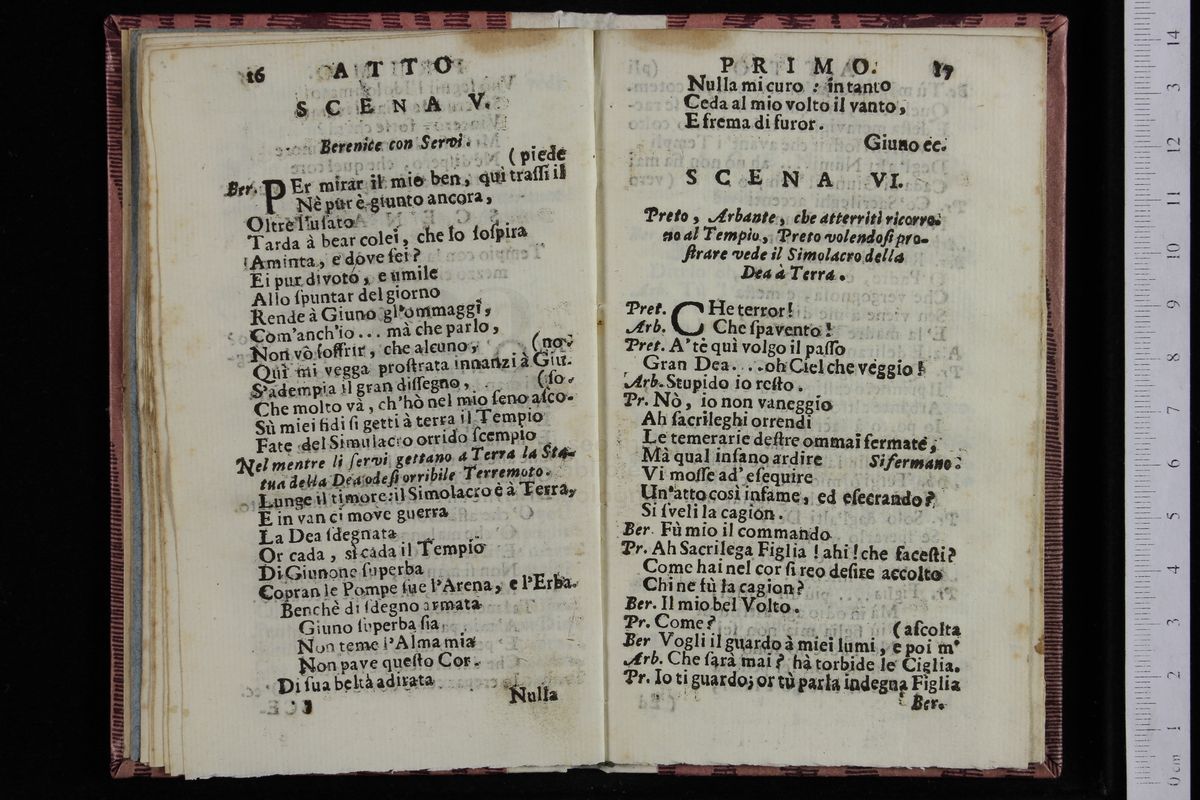 16 ATTO
SCENA V.
Berenice con Servi.
(piede
Ber. PEr mirar il mio ben, qui traſſi il
Nè pur è giunto ancora,
Oltre l'uſato
Tarda à bear colei, che Io ſoſpira
Aminta, e dove ſei?
Ei pur divoto, e umile
Allo ſpuntar del giorno
Rende à Giuno gl'ommaggi,
Com'anch'io... mà che parlo,
Non vò ſoffrir, che alcuno, (no.
Quì mi vegga proſtrata innanzi à Giu-
S'adempia il gran diſſegno, (ſo.
Che molto và, ch'hò nel mio ſeno aſco-
Sù miei fidi ſi getti à terra il Tempio
Fate del Simulacro orrido ſcempio
Nel mentre li ſervi gettano a Terra la Sta-
tua della Dea odeſi orribile Terremoto.
Lunge il timore: il Simolacro è à Terra,
E in van ci move guerra
La Dea ſdegnata
Or cada, sì cada il Tempio
Di Giunone ſuperba
Copran le Pompe ſue l'Arena, e l'Erba.
Benchè di ſdegno armata
Giuno ſuperba ſia
Non teme l'Alma mia
Non pave queſto Cor.
Di ſua beltà adirata
Nulla
PRIMO. 17
Nulla mi curo: in tanto
Ceda al mio volto il vanto,
E frema di furor.
Giuno ec.
SCENA VI.
Preto, Arbante, che atterriti ricorro-
no al Tempio, Preto volendoſi pro-
ſtrare vede il Simolacro della
Dea à Terra.
Pret. CHe terror!
Arb. Che ſpavento!
Pret. A' tè quì volgo il paſſo
Gran Dea....oh Ciel che veggio!
Arb. Stupido io reſto.
Pr. Nò, io non vaneggio
Ah ſacrileghi orrendi
Le temerarie deſtre ommai fermate,
Mà qual inſano ardire Si fermano.
Vi moſſe ad' eſequire
Un'atto così infame, ed eſecrando?
Si ſveli la cagion.
Ber. Fù mio il commando
Pr. Ah Sacrilega Figlia! ahi! che faceſti?
Come hai nel cor ſi reo deſire accolto
Chi ne fù la cagion?
Ber. Il mio bel Volto.
Pr. Come? (aſcolta
Ber Vogli il guardo à miei lumi, e poi m'
Arb. Che ſarà mai? hà torbide le Ciglia.
Pr. Io ti guardo; or tù parla indegna Figlia
Ber.